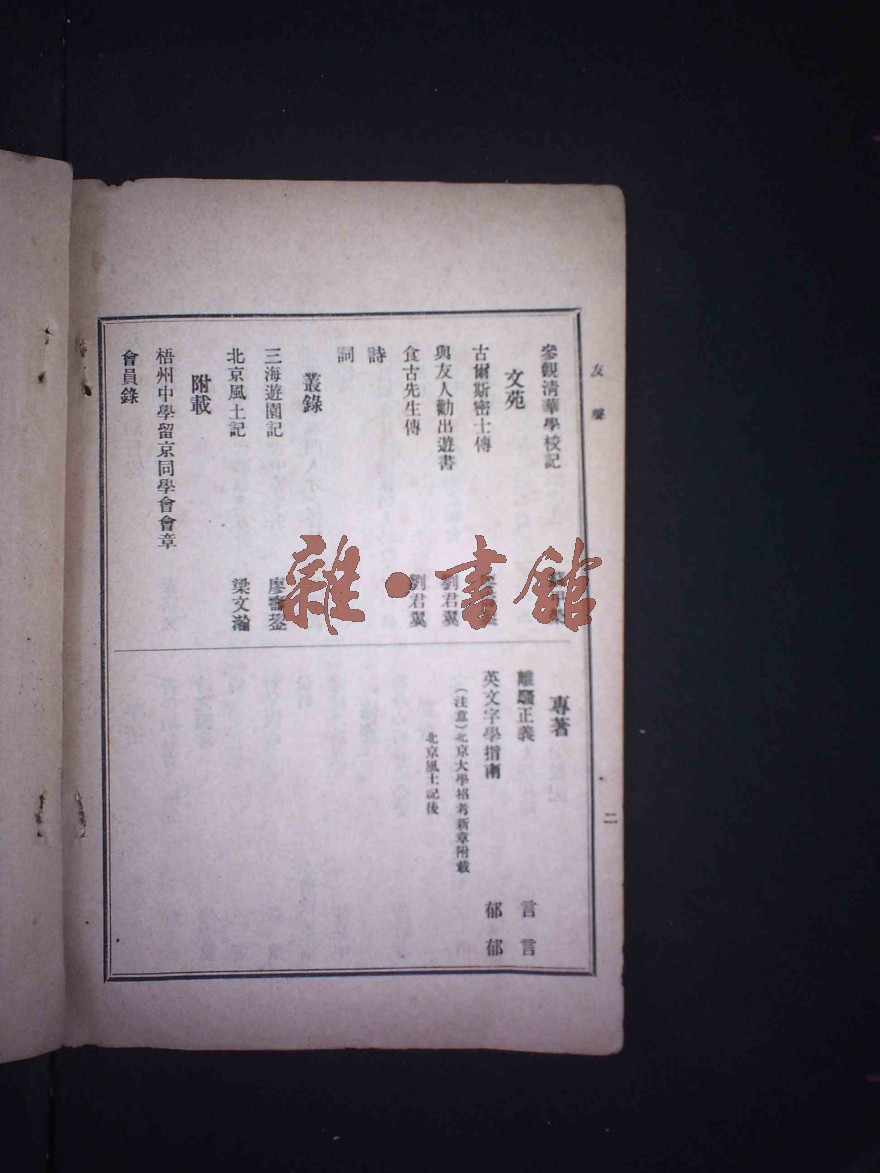 友聲
二
參觀清華學校記
文苑
古爾斯密士傳
與友人勸出遊書 劉君翼
食古先生傳 劉君翼
詩
詞
叢錄
三海遊園記
北京風土記 梁文瀚
附載
梧州中學留京同學會會章
會員錄
專著
離騷正義 言言
英文字學指南 郁郁
(注意)北京大學招考新章附載
北京風土記後
雜·書館